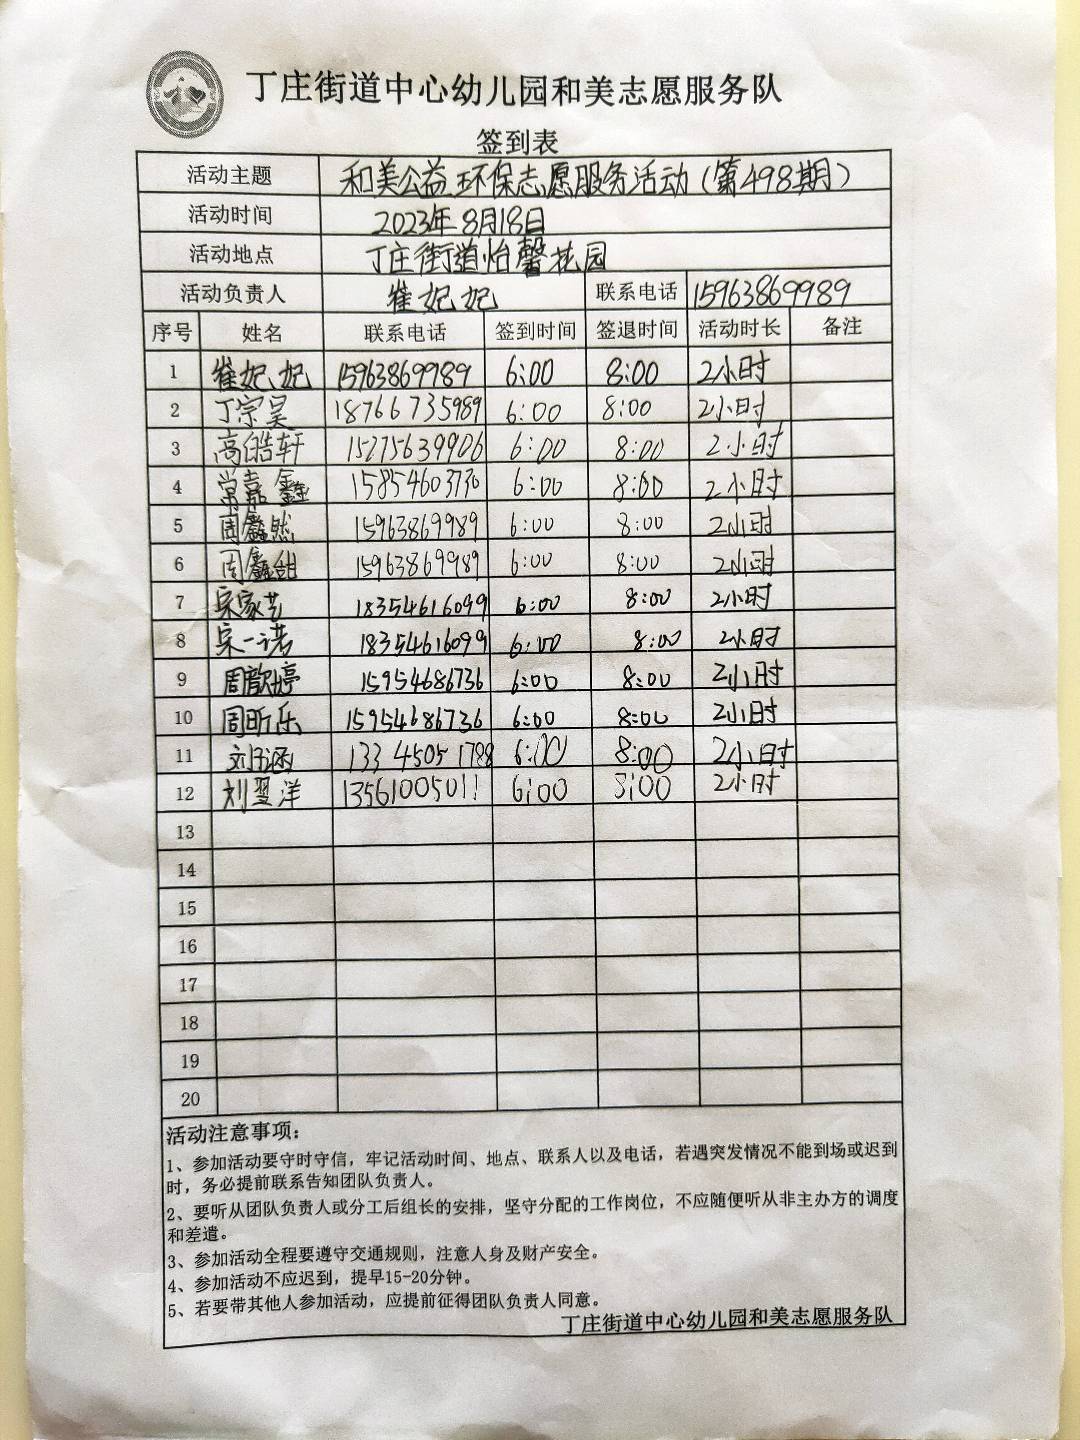 丁庄街道中心幼儿园和美志愿服务队
签到表
活动主题 和美公益环保志愿服务活动（第498期）
活动时间 2023年8月18日
活动地点 丁庄街道怡馨花园
活动负责人 崔妃妃 联系电话 15963869989
序号 姓名 联系电话 签到时间 签退时间 活动时长 备注
1 崔妃妃 15963869989 6:00 8:00 2小时
2 丁宗昊 18766735989 6:00 8:00 2小时
3 高皓轩 15275639906 6:00 8:00 2小时
4 常嘉鑫 15854603730 6:00 8:00 2小时
5 周鑫然 15963869989 6:00 8:00 2小时
6 周鑫甜 15963869989 6:00 8:00 2小时
7 宋家艺 18354616099 6:00 8:00 2小时
8 宋一诺 18354616099 6:00 8:00 2小时
9 周歆婷 15954686736 6:00 8:00 2小时
10 周昕乐 15954686736 6:00 8:00 2小时
11 刘涵 13345051788 6:00 8:00 2小时
12 刘翌洋 13561005011 6:00 8:00 2小时
13
14
15
16
17
18
19
20
活动注意事项：
1、参加活动要守时守信，牢记活动时间、地点、联系人以及电话，若遇突发情况不能到场或迟到
时，务必提前联系告知团队负责人。
2、要听从团队负责人或分工后组长的安排，坚守分配的工作岗位，不应随便听从非主办方的调度
和差遣。
3、参加活动全程要遵守交通规则，注意人身及财产安全。
4、参加活动不应迟到，提早15-20分钟。
5、若要带其他人参加活动，应提前征得团队负责人同意。
丁庄街道中心幼儿园和美志愿服务队